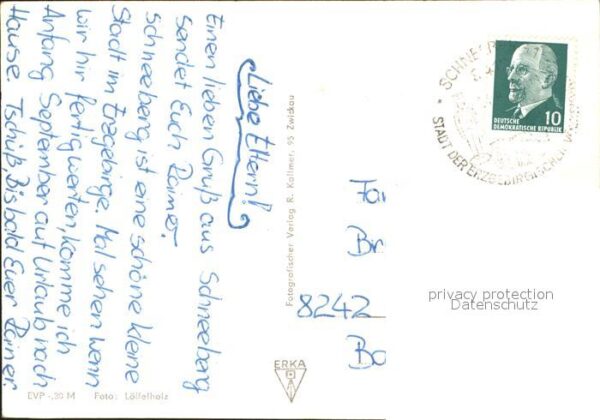 Liebe Eltern!
Einen lieben Gruß aus Schneeberg
sendet Euch Rainer.
Schneeberg ist eine schöne kleine
Stadt im Erzgebirge. Mal sehen wenn
wir hir fertig werten, komme ich
Anfang September auf Urlaub nach
Hause. Tschüß, Bis bald Euer Rainer
EVP -,20 M Foto: Löffelholz
Fotografischer Verlag R. Kallmer, 95 Zwickau
ERKA
DEUTSCHE
DEMOKRATISCHE REPUBLIK
10
STADT DER ERZGEBIRGISCHEN
8242
privacy protection
Datenschutz